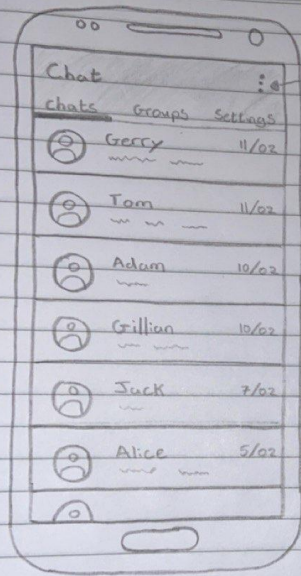 Chat
Chats Groups Settings
Gerry 11/02
Tom 11/02
Adam 10/02
Gillian 10/02
Jack 7/02
Alice 5/02